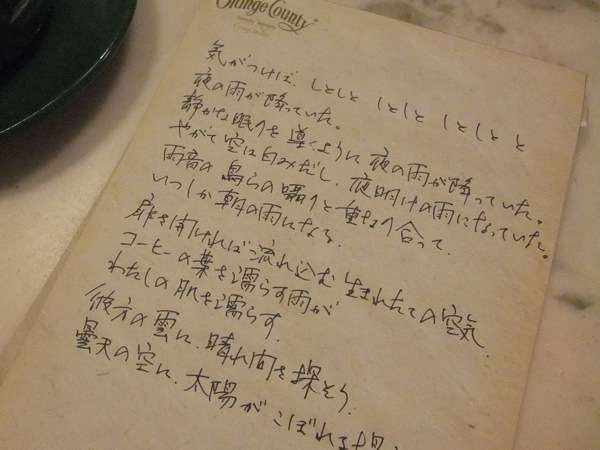 Orange County
気がつけば、しとしと しとしと しとしと と
夜の雨が降っていた。
静かな眠りを導くように夜の雨が降っていた。
やがて空は白みだし、夜明けの雨になっていた。
雨音の鳥らの囁りと重なり合って、
いつしか朝の雨になる。
扉を開ければ流れ込む 生まれたての空気、
コーヒーの葉を濡らす雨が
わたしの肌を濡らす。
彼方の雲に、晴れ間を探そう。
曇天の空に、太陽がこぼれる